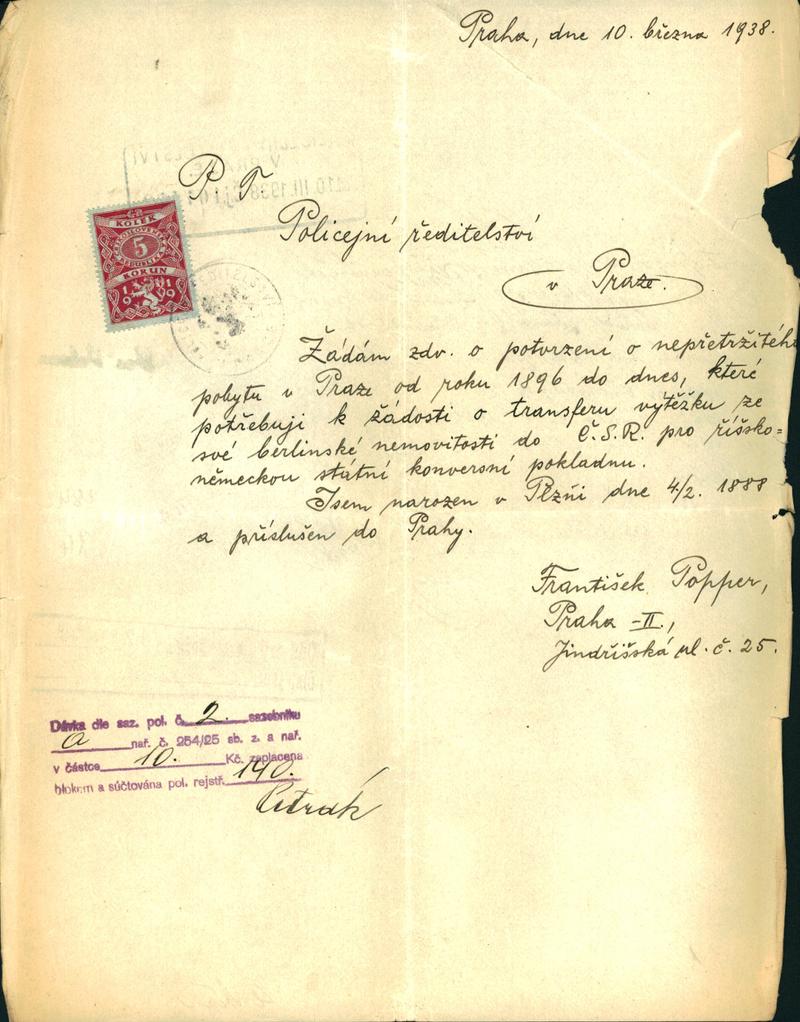 Praha, dne 10. března 1938.
P. T.
KOLEK
5
KORUN
1919
Policejní ředitelství
v Praze.
Žádám zdv. o potvrzení o nepřetržitého
pobytu v Praze od roku 1896 do dnes, které
potřebuji k žádosti o transferu výtěžku ze
své berlinské nemovitosti do Č.S.R. pro říšsko=
německou státní konversní pokladnu.
Jsem narozen v Plzňi dne 4/2. 1888
a příslušen do Prahy.
František Popper,
Praha -II.,
Jindřišská ul. č. 25.
Dávka dle saz. pol. č. 2. sazebníku
a nař. č. 254/25 sb. z. a nař.
v částce 10. Kč zaplacena
blokem a súčtována pol. rejstř. 140.